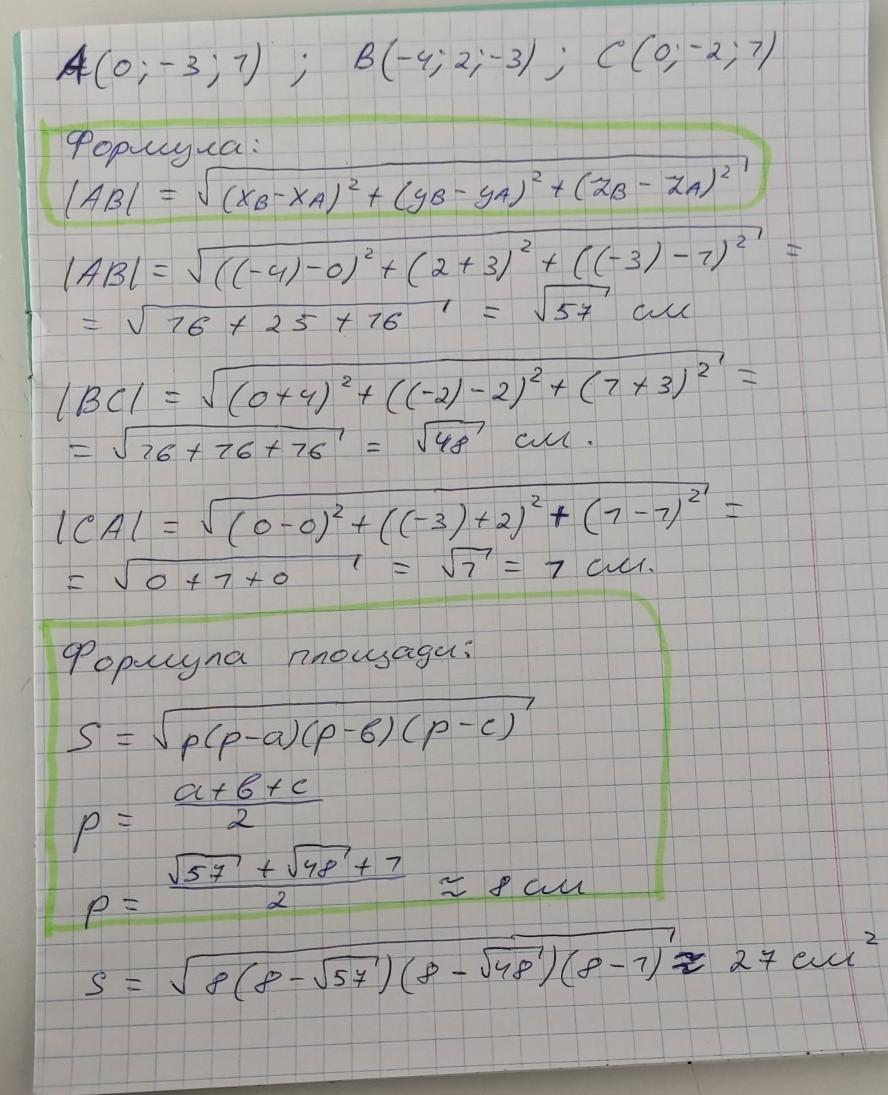 A(0;-3;1) ; B(-4;2;-3) ; C(0;-2;1)
Формула:
|AB| = √(xB-xA)² + (yB-yA)² + (zB-zA)²
|AB| = √((-4)-0)² + (2+3)² + ((-3)-1)² =
= √16+25+16 = √57 см
|BC| = √(0+4)² + ((-2)-2)² + (1+3)² =
= √16+16+16 = √48 см.
|CA| = √(0-0)² + ((-3)+2)² + (1-1)² =
= √0+1+0 = √1 = 1 см.
Формула площади:
S = √p(p-a)(p-в)(p-c)
p = (a+в+c)/2
p = (√57+√48+1)/2 ≈ 8 см
S = √8(8-√57)(8-√48)(8-1) ≈ 27 см²